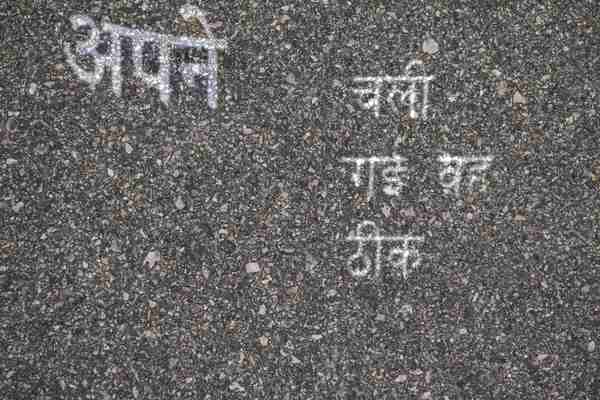 अपने
चली
गई वह
ठीक